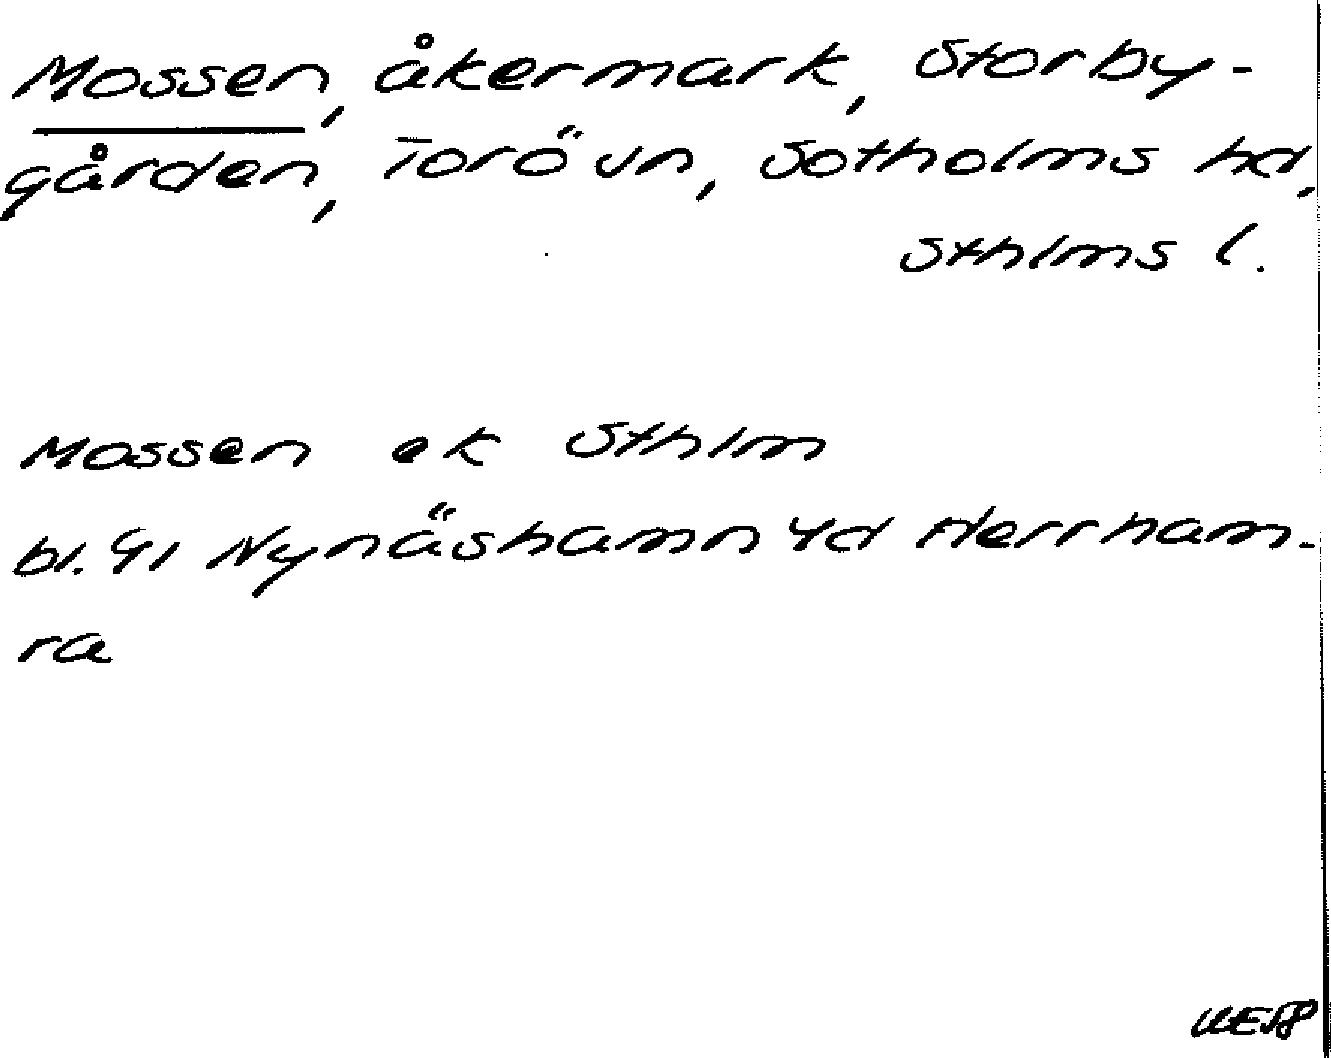 Mossen, åkermark, Storby-
gården, Torö sn, Sotholms hd,
Sthlms l.
Mossen ek Sthlm
bl. 91 Nynäshamn 4d Herrham-
ra